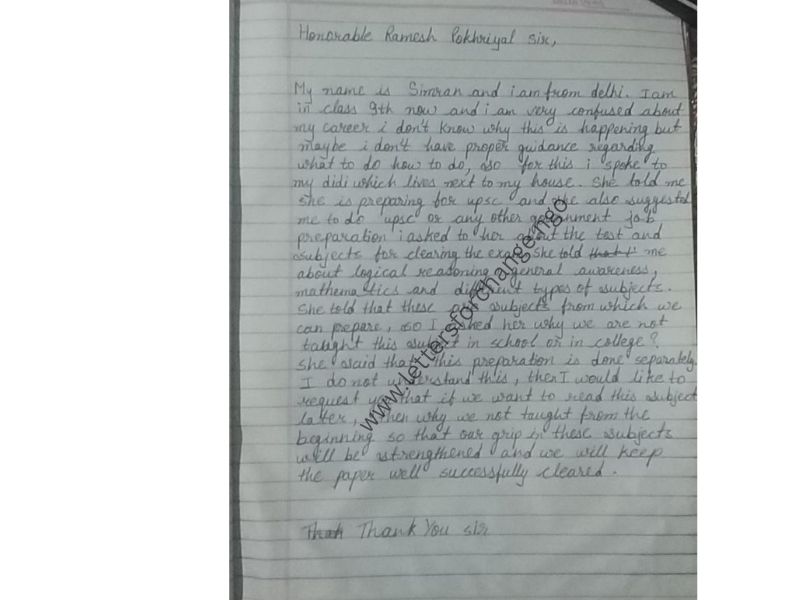 Honorable Ramesh Pokhriyal sir,
My name is Simran and i am from delhi. I am
in class 9th now and i am very confused about
my career i don't know why this is happening but
maybe i don't have proper guidance regarding
what to do how to do, so for this i spoke to
my didi which lives next to my house. She told me
she is preparing for upsc and she also suggested
me to do upsc or any other government job
preparation i asked to her about the test and
subjects for clearing the exam she told that i me
about logical reasoning, general awareness,
mathematics and different types of subjects.
She told that these are subjects from which we
can prepare, so I asked her why we are not
taught this subject in school or in college?
She said that this preparation is done separately.
I do not understand this, then I would like to
request you that if we want to read this subject
latter, then why we not taught from the
beginning so that our grip in these subjects
will be strengthened and we will keep
the paper well successfully cleared.
Thank You sir
www.lettersforchange.ngo